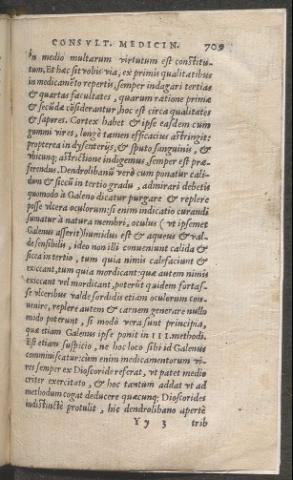 CONSVLT. MEDICIN. 709
in medio multarum virtutum est constitu-
tum. Et hæc sit vobis via, ex primis qualitatibus
in medicamẽto repertis, semper indagari tertias
& quartas facultates, quarum ratione primæ
& secũdæ cõsiderantur, hoc est circa qualitates
& sapores. Cortex habet & ipse easdem cum
gummi vires, longè tamen efficacius astringit:
propterea in dysenterijs, & sputo sanguinis, &
vbicunq; astrictione indigemus, semper est præ-
ferendus. Dendrolibanũ verò cum ponatur cali-
dum & siccũ in tertio gradu, admirari debetis
quomodo à Galeno dicatur purgare & replere
posse vlcera oculorum: si enim indicatio curandi
sumatur à natura membri, oculus (vt ipsemet
Galenus asserit) humidus est & aqueus & val-
de sensibilis, ideo non illi conueniunt calida &
sicca in tertio, tum quia nimis calefaciunt &
exiccant, tum quia mordicant: quæ autem nimis
exiccant vel mordicant, poterũt quidem fortas-
se vlceribus valde sordidis etiam oculorum con-
uenire, replere autem & carnem generare nullo
modo poterunt, si modò vera sunt principia,
quæ etiam Galenus ipse ponit in III. methodi.
Est etiam suspicio, ne hoc loco sibi id Galenus
comminiscatur: cùm enim medicamentorum vi-
res semper ex Dioscoride referat, vt patet medio
criter exercitato, & hoc tantùm addat vt ad
methodum cogat deducere quæcunq; Dioscorides
indistinctè protulit, hic dendrolibano apertè
Y y 3 trib